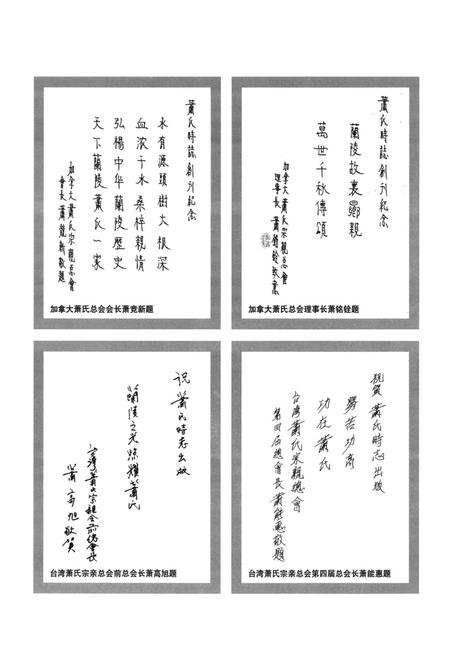 蕭氏時誌創刊紀念
水有源頭樹大根深
血浓于水桑梓親情
弘楊中华蘭陵歷史
天下蘭陵蕭氏一家
加拿大蕭氏宗親总會
會長蕭競新敬題
加拿大萧氏总会会长萧竞新题
蕭氏時誌創刊紀念
蘭陵故裏鄭親
萬世千秋傳頌
加拿大蕭氏宗親总會
理事長蕭銘銓敬意
加拿大萧氏总会理事长萧铭铨题
祝蕭氏時志出版
蘭陵之光炤耀蕭氏
台湾蕭氏宗親会前總會長
蕭高旭敬賀
台湾萧氏宗亲总会前总会长萧高旭题
祝賀蕭氏時志出版
勞苦功高
功在蕭氏
台湾蕭氏宗親總會
第四届總會長蕭能惠敬題
台湾萧氏宗亲总会第四届总会长萧能惠题